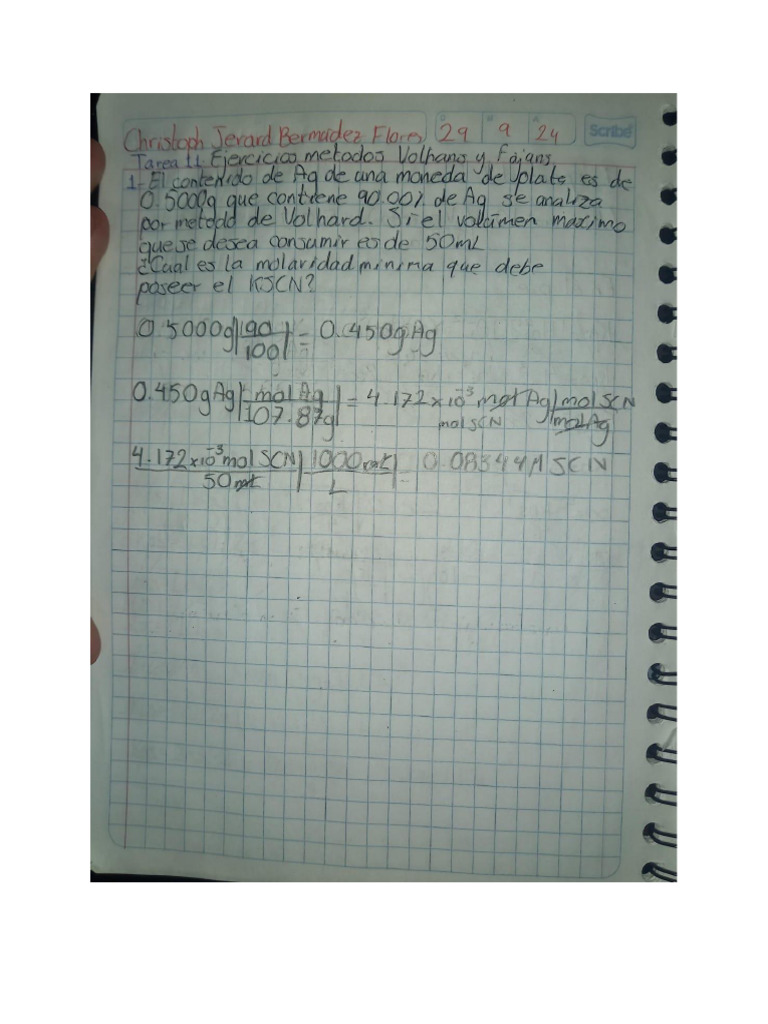 Christoph Jerard Bermudez Flores 29 9 24 Scribe
Tarea 11 Ejercicios metodos Volhano y Fajans
1- El contenido de Ag de una moneda de plata es de
0.5000g que contiene 90.00% de Ag se analiza
por metodo de Volhard. Si el volumen maximo
que se desea consumir es de 50mL
¿Cual es la molaridad minima que debe
poseer el KSCN?
0.5000g|90/100| = 0.450gAg
0.450gAg|molAg/107.87g| = 4.172x10⁻³ molAg|molSCN/molAg
molSCN
4.172x10⁻³molSCN/50mL|1000mL/L| = 0.08344M SCN